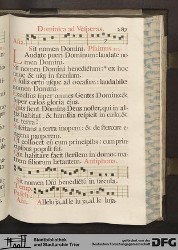 Dominica ad Vesperas.
Sit nomen Domini. Psalmus
Laudate pueri Dominum: laudate no
men Domini.
Sit nomen Domini benedictum: ex hoc
nunc & usq; in sæculum.
A solis ortu usque ad occasum: laudabile
nomen Domini.
Excelsus super omnes Gentes Dominus: &
super cælos gloria ejus.
Quis sicut Dñus Deus noster, qui in al-
tis habitat: & humilia respicit in cœlo, &
in terra?
Suscitans a terra inopem: & de stercore e-
rigens pauperem.
Ut collocet eū cum principibus: cum prin-
cipibus populi sui.
Qui habitare facit sterilem in domo: ma-
trem filiorum lætantem. Antiphona.
Sit nomen Dñi benedictum in sæcula.
Alleluja, al le lu ja, al le luja.
Stadtbibliothek
und Stadtarchiv Trier
Gefördert durch
DFG